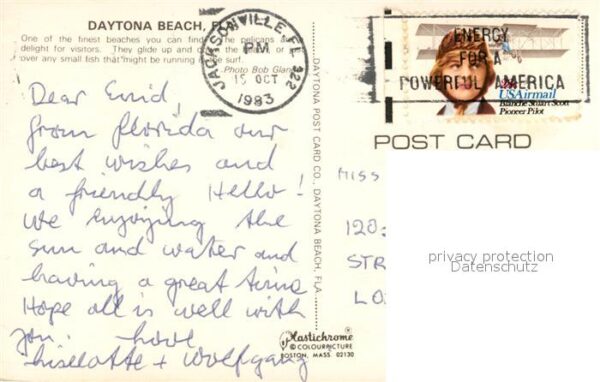 DAYTONA BEACH, FLA.
One of the finest beaches you can find. The pelicans are
delight for visitors. They glide up and the
over any small fish that might be running the surf.
Photo Bob Glan
JACKSONVILLE, FL 322
PM
15 OCT
1983
ENERGY
FOR A
POWERFUL AMERICA
USAirmail
Blanche Stuart Scott
Pioneer Pilot
POST CARD
Dear Enid,
from florida our
best wishes and
a friendly Hello!
We enjoying the
sun and water and
having a great time
Hope all is well with
you. Love
Liselotte + Wolfgang
DAYTONA POST CARD CO., DAYTONA BEACH, FLA.
MISS
128
STR
LO
privacy protection
Datenschutz
Plastichrome®
© COLOURPICTURE
BOSTON, MASS. 02130